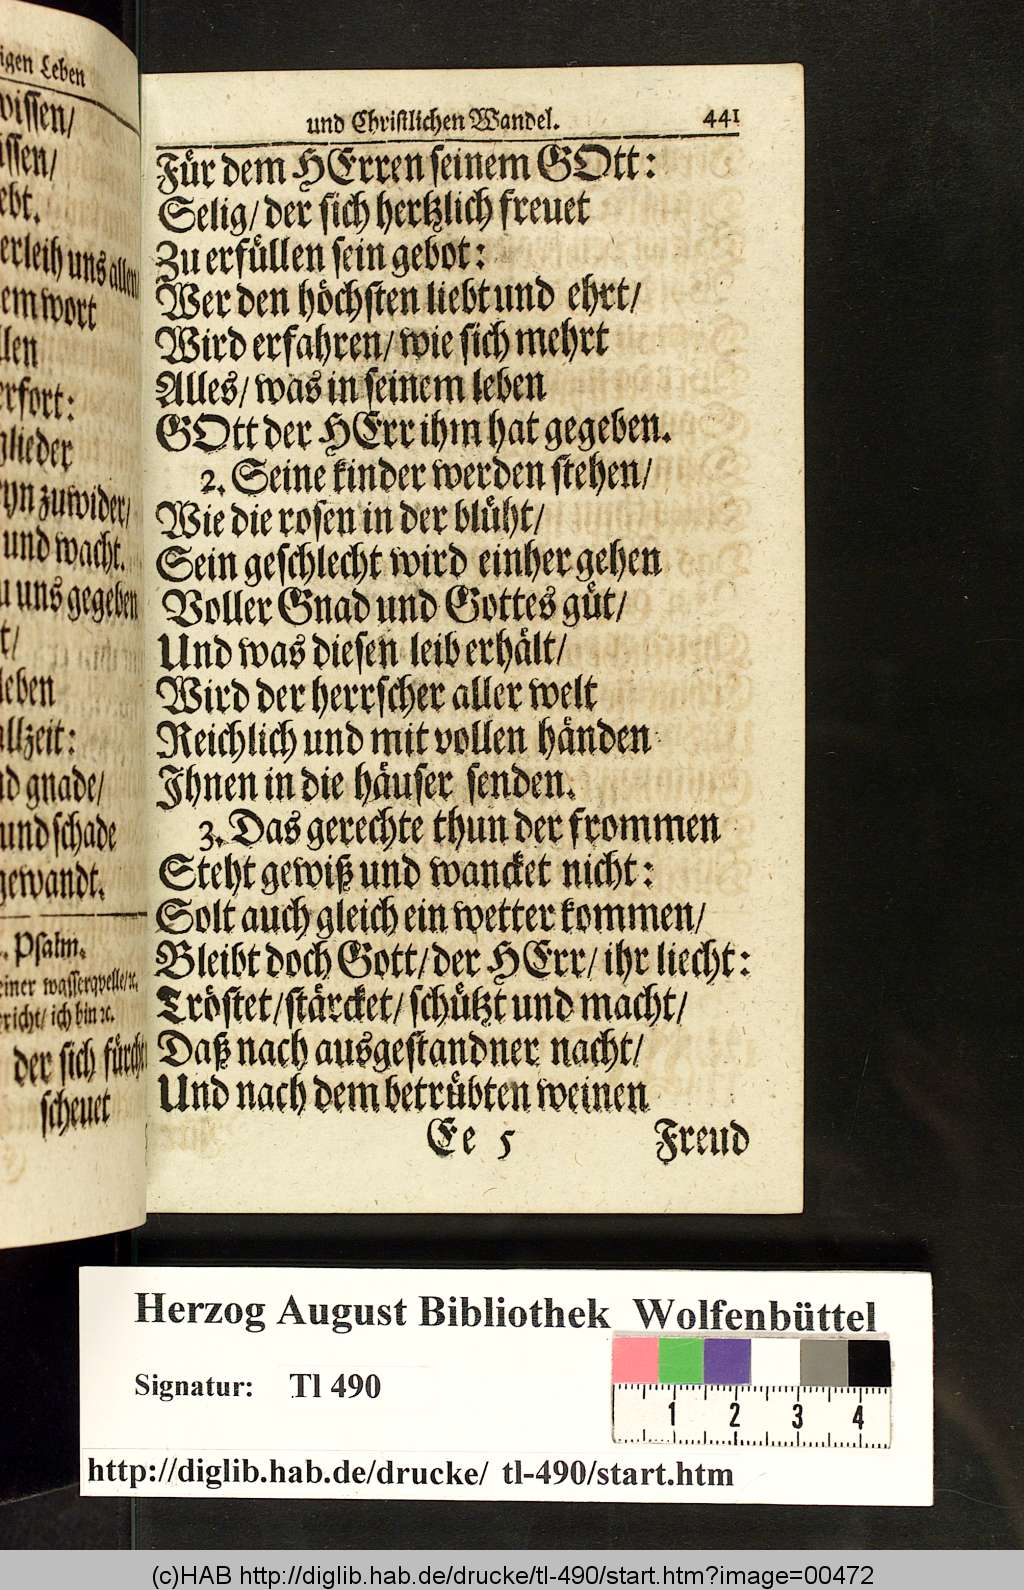 igen Leben
wissen/
issen/
ebt.
erleih uns allen
em wort
llen
erfort:
glieder
yn zuwider/
und wacht.
u uns gegeben
t/
leben
allzeit:
nd gnade/
und schade
gewandt.
. Psalm.
einer wasserqvelle/ꝛc.
ericht/ ich bin ꝛc.
der sich fürch
scheuet
und Christlichen Wandel. 441
Für dem HErren seinem GOtt:
Selig/ der sich hertzlich freuet
Zu erfüllen sein gebot:
Wer den höchsten liebt und ehrt/
Wird erfahren/ wie sich mehrt
Alles/ was in seinem leben
GOtt der HErr ihm hat gegeben.
2. Seine kinder werden stehen/
Wie die rosen in der blüht/
Sein geschlecht wird einher gehen
Voller Gnad und Gottes güt/
Und was diesen leib erhält/
Wird der herrscher aller welt
Reichlich und mit vollen händen
Ihnen in die häuser senden.
3. Das gerechte thun der frommen
Steht gewiß und wancket nicht:
Solt auch gleich ein wetter kommen/
Bleibt doch Gott/ der HErr/ ihr liecht:
Tröstet/ stärcket/ schützt und macht/
Daß nach ausgestandner nacht/
Und nach dem betrübten weinen
Ee 5 Freud
Herzog August Bibliothek Wolfenbüttel
Signatur: Tl 490
1 2 3 4
http://diglib.hab.de/drucke/ tl-490/start.htm
(c)HAB http://diglib.hab.de/drucke/tl-490/start.htm?image=00472